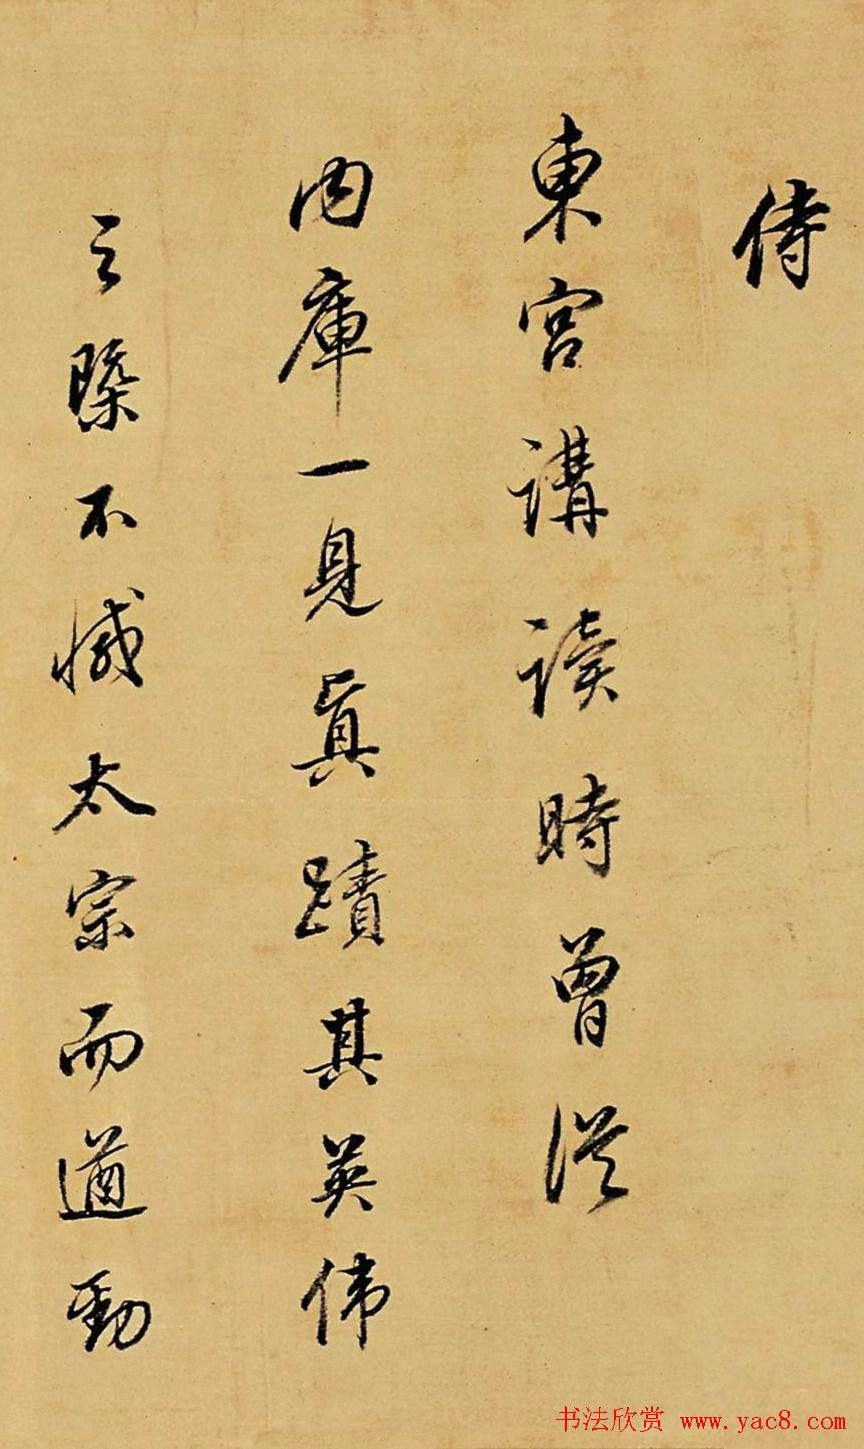 侍
東宮講讀時曾從
內庫一見真蹟其英偉
之槩不减太宗而遒勁
书法欣赏 www.yac8.com